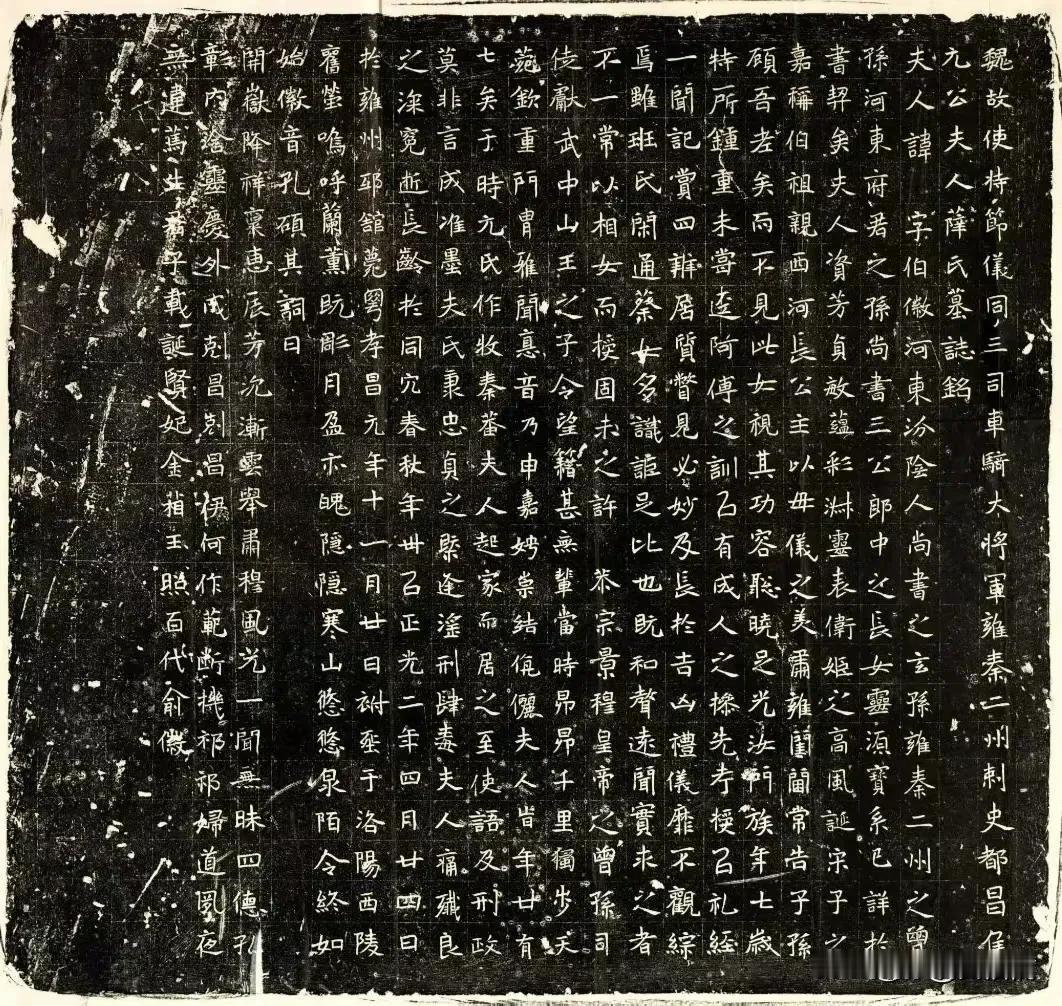 魏故使持節儀同三司車騎大將軍雍秦二州刺史都昌侯
元公夫人薛氏墓誌銘
夫人諱 字伯徽河東汾陰人尚書之玄孫雍秦二州之曾
孫河東府君之孫尚書三公郎中之長女靈源寶系已詳於
書契矣夫人資芳貞敏蘊彩淋靈表衛姬之高風誕宋子之
嘉稱伯祖親西河長公主以母儀之美肅雍閨閫常告子孫
顧吾老矣而不見此女視其功容聡曉足光汝門族年七歲
特所鍾重未嘗逵阿傅之訓已有成人之操先考授以礼經
一聞記賞四辨居質瞥見必妙及長於吉凶禮儀靡不觀綜
焉雖班氏閑通蔡女多識詎足比也既和聲遠聞實求之者
不一常以相女而授固未之許 恭宗景穆皇帝之曾孫司
徒獻武中山王之子令望籍甚無輩當時昂昂千里獨步天
苑欽重門胄雅聞惪音乃申嘉娉崇結伉儷夫人時年廿有
七矣于時元氏作牧秦蕃夫人起家而居之至使語及刑政
莫非言成准墨夫氏秉忠貞之槩逢滛刑肆毒夫人痛殲良
之深冤逝長齡於同穴春秋年卅以正光二年四月廿四日
於雍州邸舘薨粵孝昌元年十一月廿日祔塟于洛陽西陵
舊塋嗚呼蘭薰既彫月盈亦魄隱隱寒山悠悠泉陌令終如
始徽音孔碩其詞曰
開嶽降祥稟惠辰芳沉漸雲舉肅穆風光一聞無昧四德孔
彰內唅靈慶外成剋昌剋昌伊何作範斷機祁祁婦道夙夜
無違篤生君子載誕賢妃金箱玉照百代俞徽